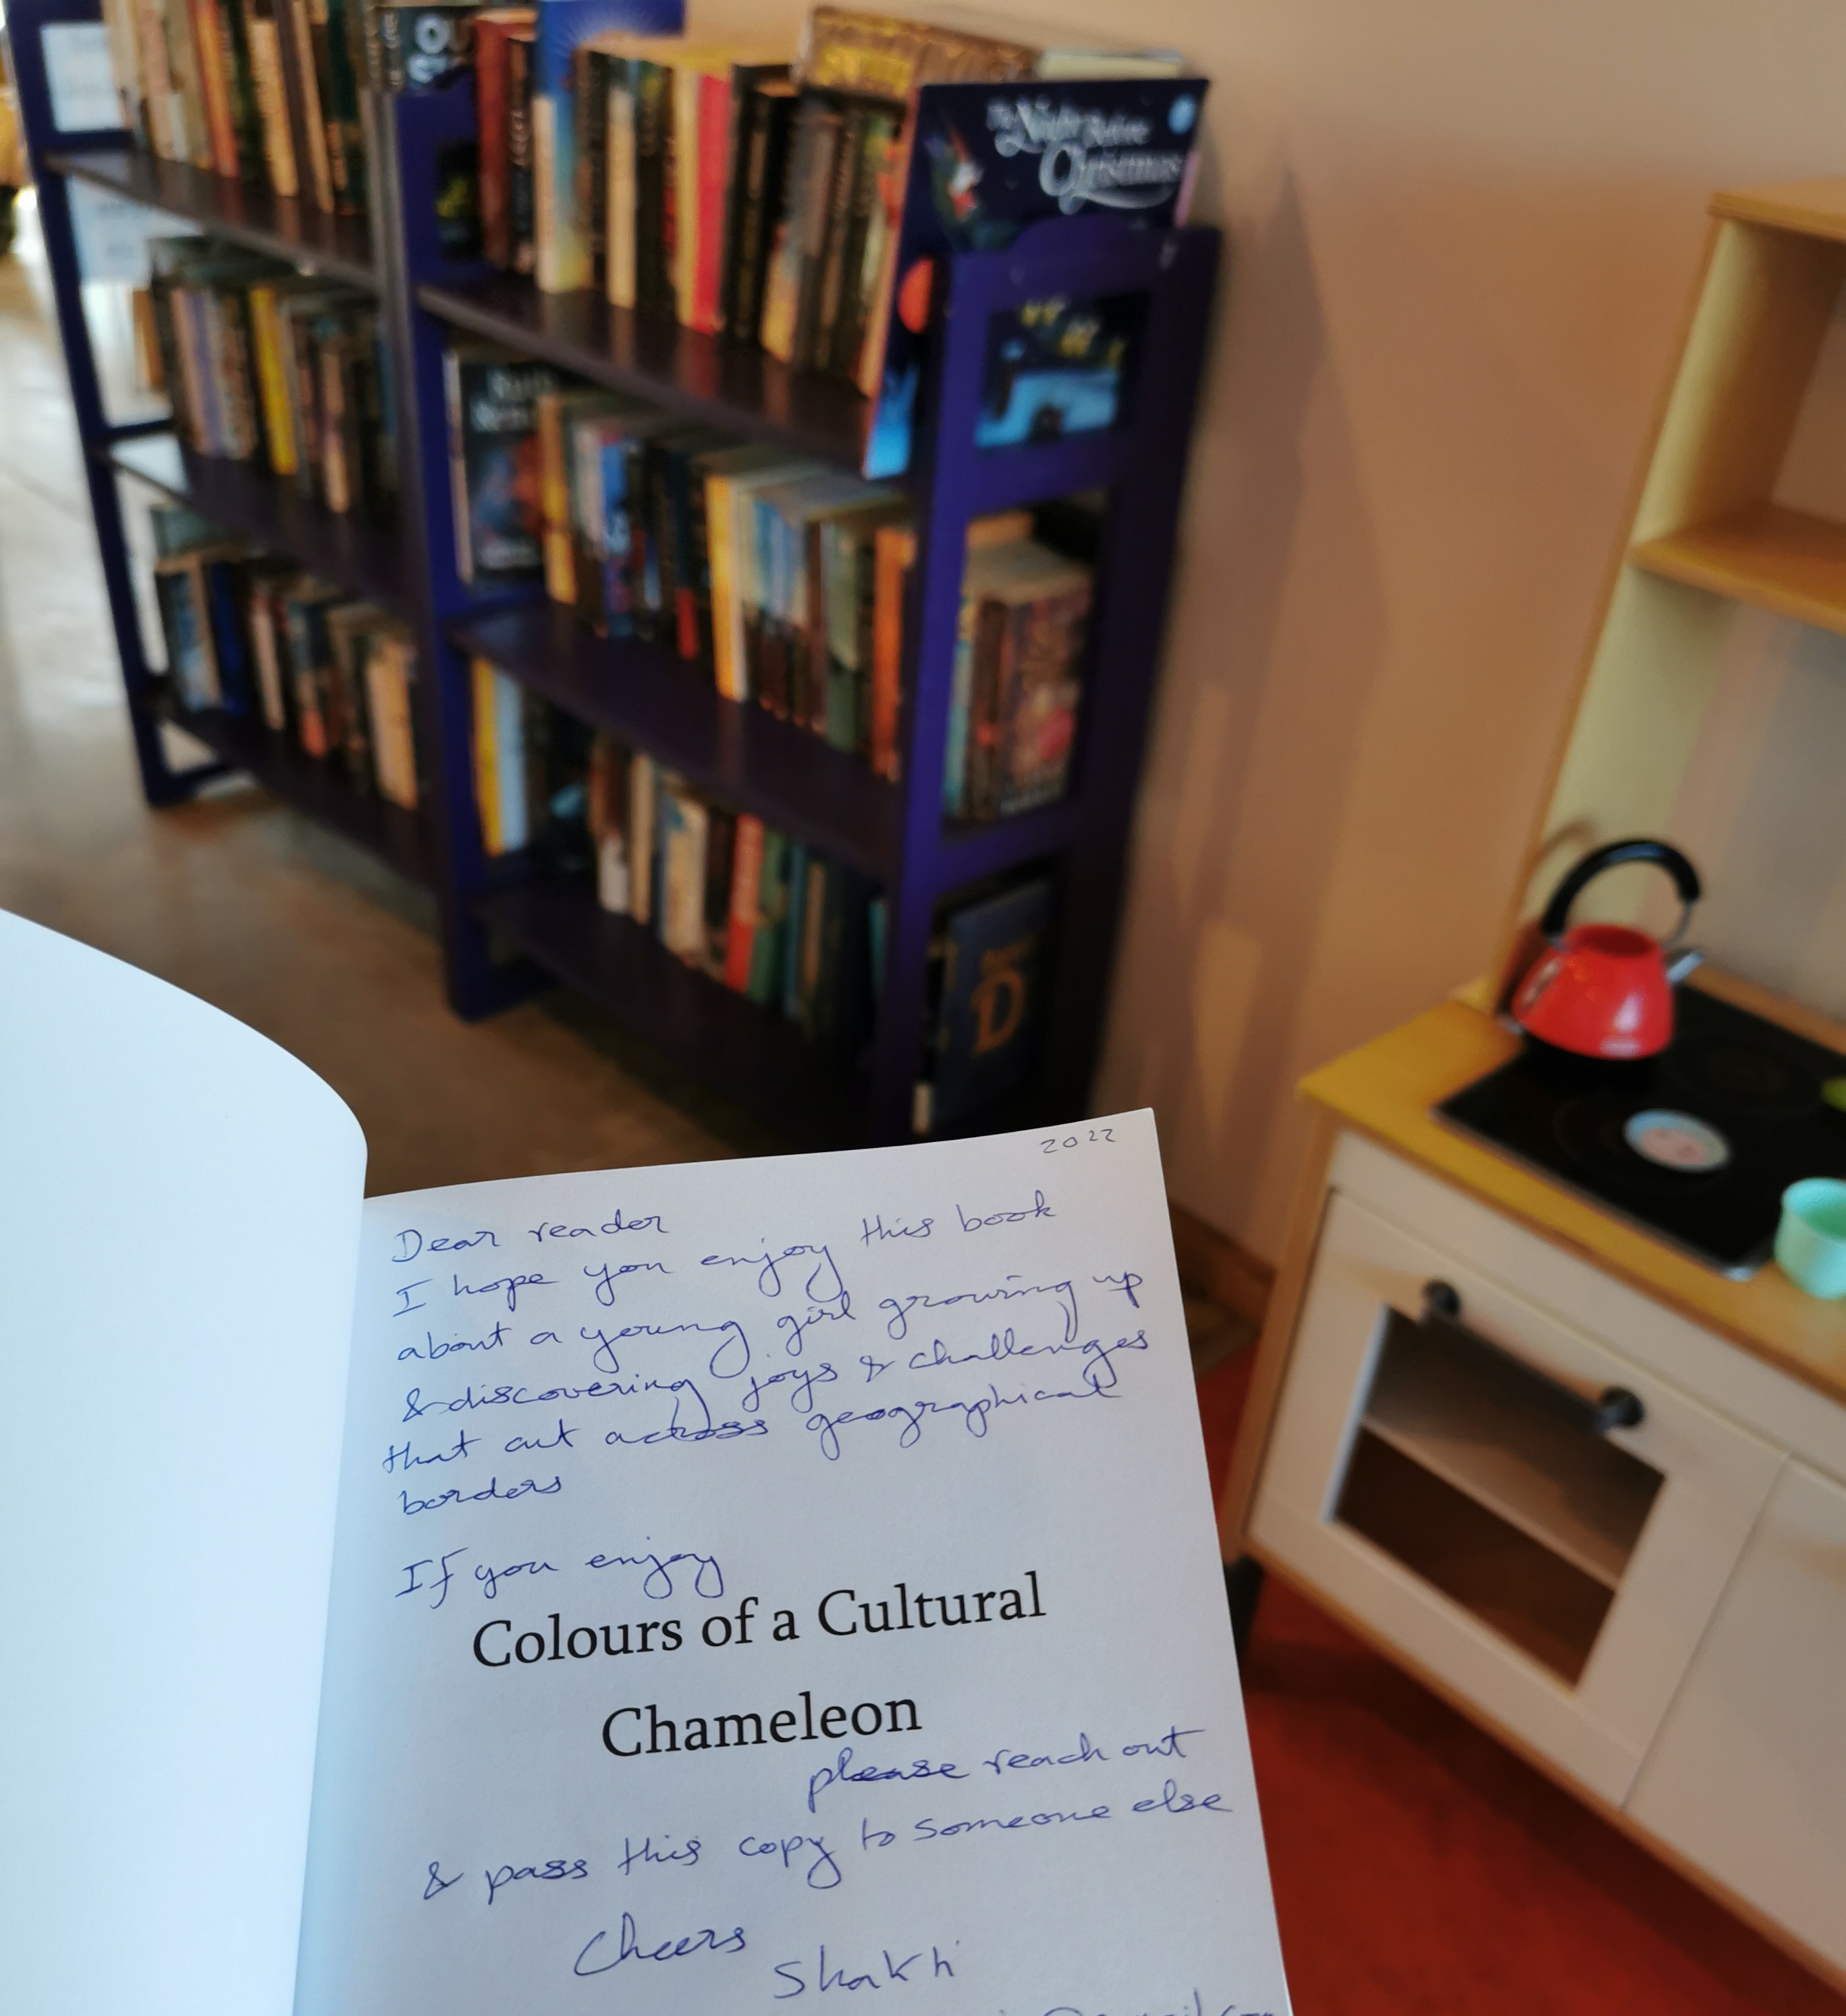 The Night Before
Christmas
D
2022
Dear reader
I hope you enjoy this book
about a young girl growing up
& discovering joys & challenges
that cut across geographical
borders
If you enjoy
Colours of a Cultural
Chameleon
please reach out
& pass this copy to someone else
Cheers
Shakhi